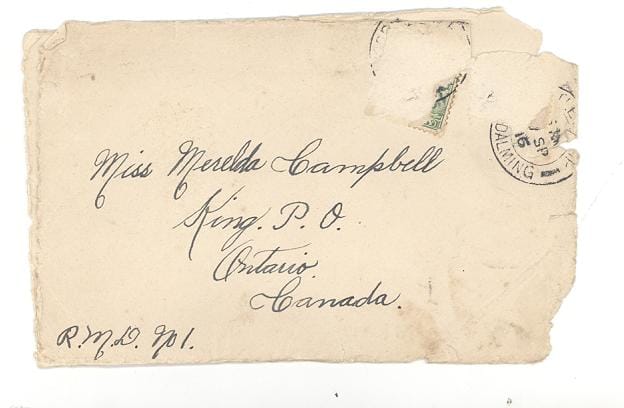 SP
16
DALMING
Miss Merelda Campbell
King. P. O.
Ontario.
Canada.
R.M.D. No 1.